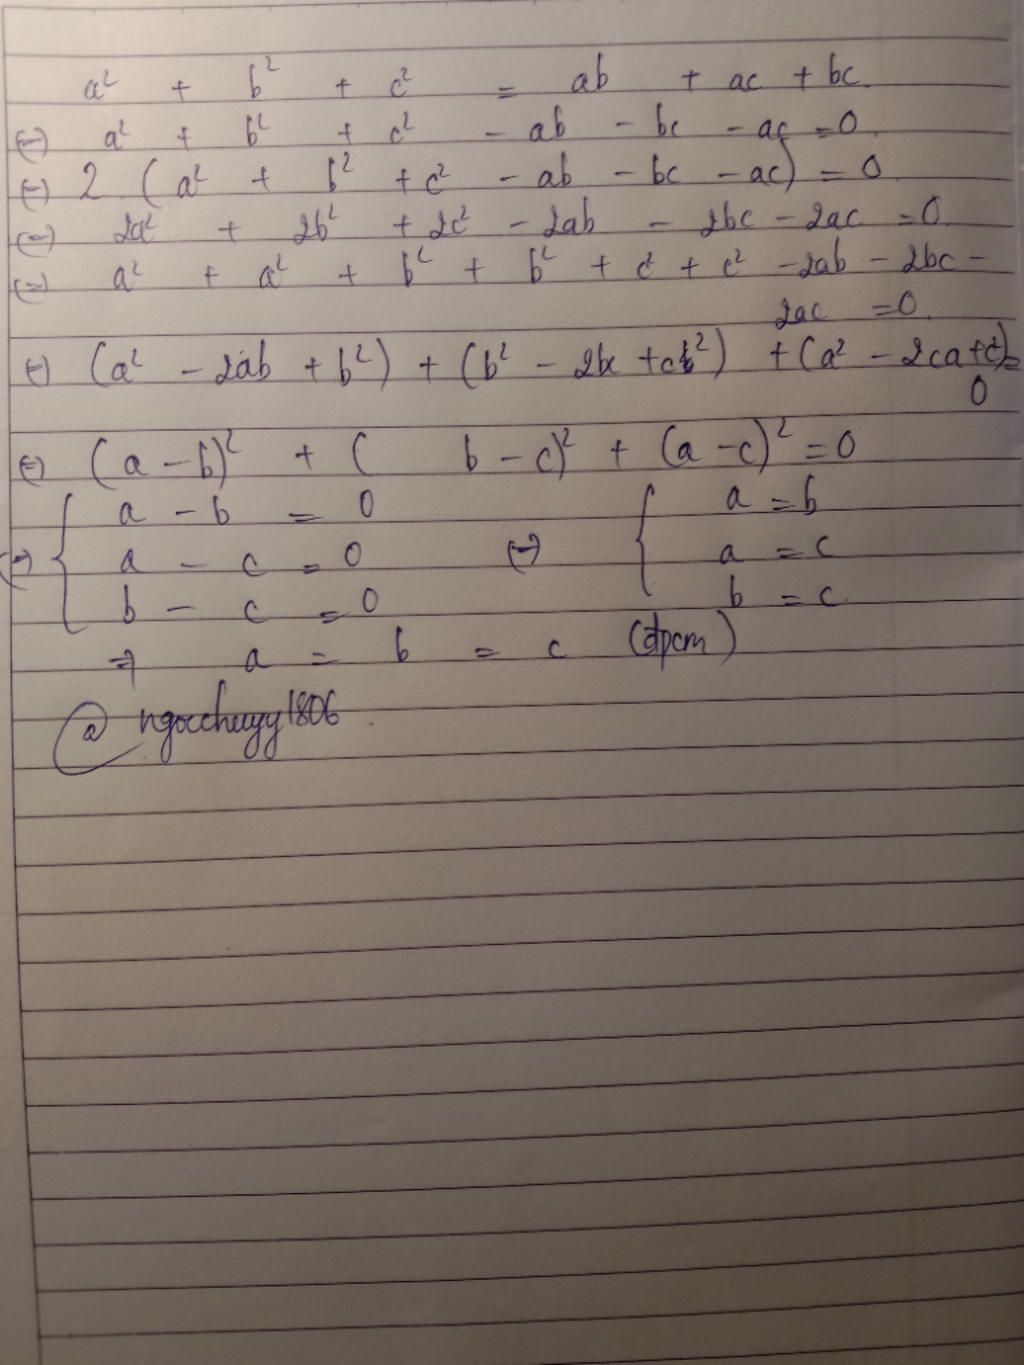 a² + b² + c² = ab + ac + bc.
(=) a² + b² + c² - ab - bc - ac = 0.
(=) 2 (a² + b² + c² - ab - bc - ac) = 0
(=) 2a² + 2b² + 2c² - 2ab - 2bc - 2ac = 0.
(=) a² + a² + b² + b² + c² + c² - 2ab - 2bc -
2ac = 0.
(=) (a² - 2ab + b²) + (b² - 2bc + c²) + (a² - 2ca + c²) =
0
(=) (a - b)² + ( b - c)² + (a - c)² = 0
(=) { a - b = 0 { a = b
a - c = 0 (=) a = c
b - c = 0 b = c.
⇒ a = b = c (đpcm)
@ ngocchuyy1806.